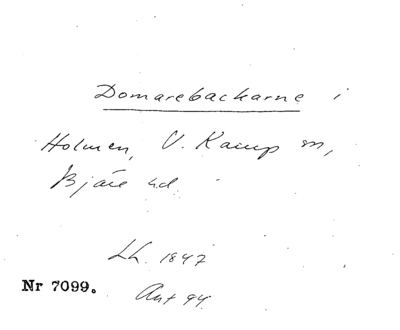 Domarebackarne i
Holmen, V. Karup sn,
Bjäre hd.
Lh. 1847
Nr 7099.
Ant 94